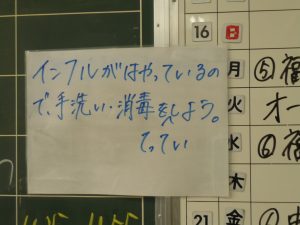 インフルがはやっているの
で、手洗い・消毒をしよう。
てってい
16 日
月 ⑤福
火 オー
水 ⑥福
木
21 金